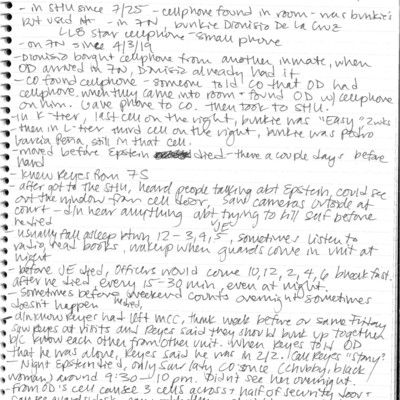 - in SHU since 7/25 - cellphone found in room - was bunkie's
but used it - in 7N, bunkie Dionisio De La Cruz
LLB star cellphone - small phone
- on 7N since 4/3/19
- Dionisio bought cellphone from another inmate, when
OD arrived in 7N, Dionisio already had it
- CO found cellphone - someone told CO that OD had
cellphone. when they came into room + found OD w/ cellphone
on him. Gave phone to CO. then took to SHU.
- in K-tier, last cell on the right, bunkie was "Easy" 2wks
- then in L-tier third cell on the right, bunkie was Pedro
Garcia Pena, still in that cell.
- moved before Epstein died - there a couple days before
hand
- knew Reyes from 7S
- after got to the SHU, heard people talking abt Epstein, could see
out the window from cell door, saw cameras outside at
court - d/n hear anything abt trying to kill self before
he died
- usually fall asleep btwn 12-3, 4, 5, sometimes listen to
radio, read books, wake up when guards come in unit at
night
- before JE died, officers would come 10, 12, 2, 4, 6 breakfast.
after he died, every 15-30 min, even at night.
- sometimes before weekend counts overnight sometimes
doesn't happen
- d/n know Reyes had left MCC, think week before or same Friday
saw Reyes at visits and Reyes said they should bunk up together
b/c know each other from other unit. When Reyes told OD
that he was alone, Reyes said he was in 2/2. Call Reyes "Stony"
- Night Epstein died, only saw lady CO since (chubby, black
woman) around 9:30-10pm. Didn't see her overnight.
from OD's cell can see 3 cells across + half of security door +